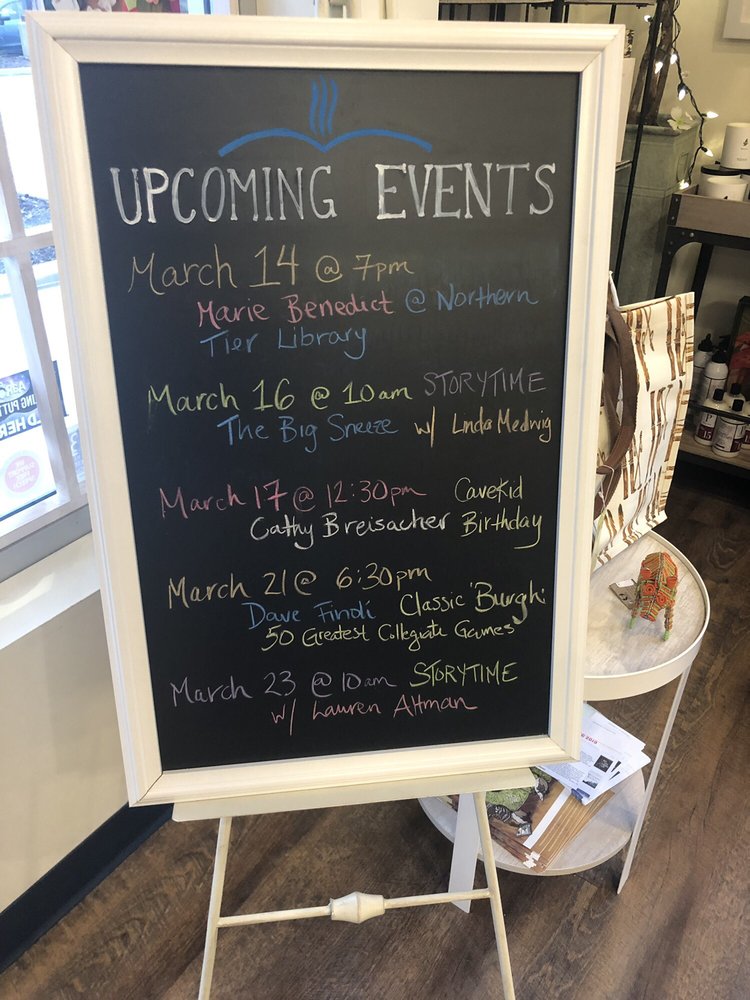 UPCOMING EVENTS
March 14 @ 7pm
Marie Benedict @ Northern
Tier Library
March 16 @ 10am STORYTIME
The Big Sneeze w/ Linda Medwig
March 17 @ 12:30pm CaveKid
Cathy Breisacher Birthday
March 21 @ 6:30pm
Dave Finoli Classic 'Burgh:
50 Greatest Collegiate Games
March 23 @ 10am STORYTIME
w/ Lauren Altman